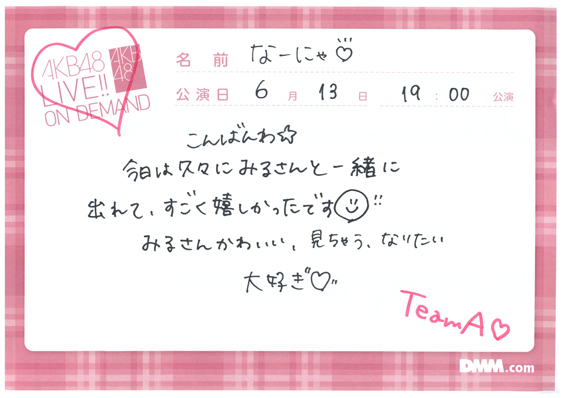 AKB48
LIVE!!
ON DEMAND
AKB
48
名前 なーにゃ♡
公演日 6月13日 19:00公演
こんばんわ☆
今日は久々にみるさんと一緒に
出れて、すごく嬉しかったです☺!!
みるさんかわいい、見ちゃう、なりたい
大好き♡!!
TeamA♡
DMM.com